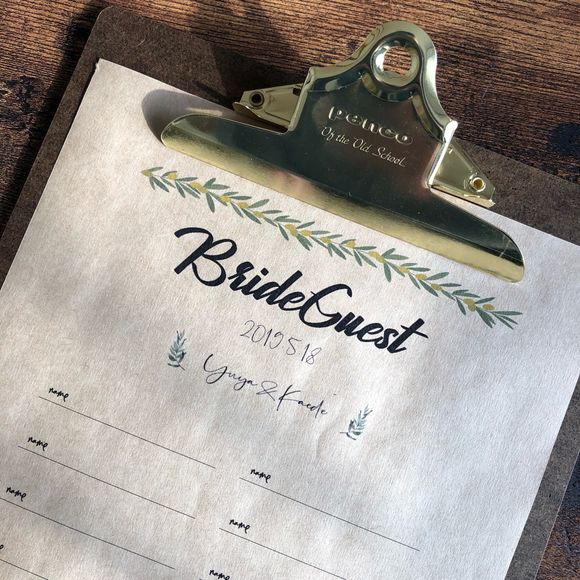 penco
Of the Old School
BrideGuest
2019 5 18
Yuya & Kaede
name
name
name
name
name
name
name